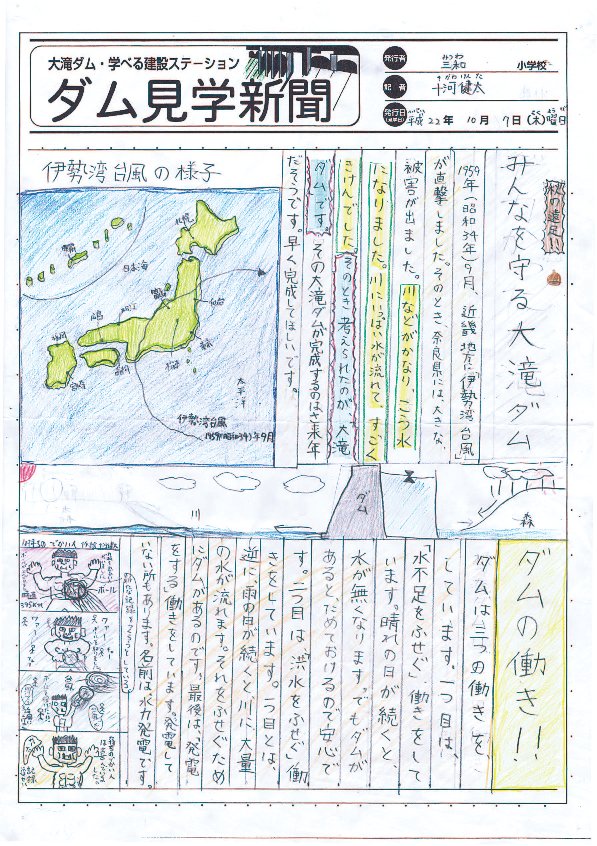 大滝ダム・学べる建設ステーション
ダム見学新聞
発行者
みつわ
三和
小学校
記者
十河健太
発行日
平成22年10月7日(木)曜日
秋の遠足!!
みんなを守る大滝ダム
1959年(昭和34年)9月 近畿地方に「伊勢湾台風」
が直撃しました。そのとき、奈良県には、大きな、
被害が出ました。川などがかなり、こう水
になりました。川にいっぱい水が流れて、すごく
きけんでした。そのとき考えられたのが、大滝
ダムです。その大滝ダムが完成するのはさ来年
だそうです。早く完成してほしいです。
伊勢湾台風の様子
札幌
日本海
仙台
太平洋
伊勢湾台風
1959(昭和34)年9月
川
ダム
森
ダムの働き!!
ダムは三つの働きを、
しています。一つ目は、
「水不足をふせぐ」働きをして
います。晴れの日が続くと、
水が無くなります。でもダムが
あると、ためておけるので安心で
す。二つ目は「洪水をふせぐ」働
きをしています。一つ目とは、
逆に、雨の日が続くと川に大量
の水が流れます。それをふせぐため
にダムがあるのです。最後は、「発電
をする」働きをしています。発電して
いない所もあります。名前は、水力発電です。
ボール